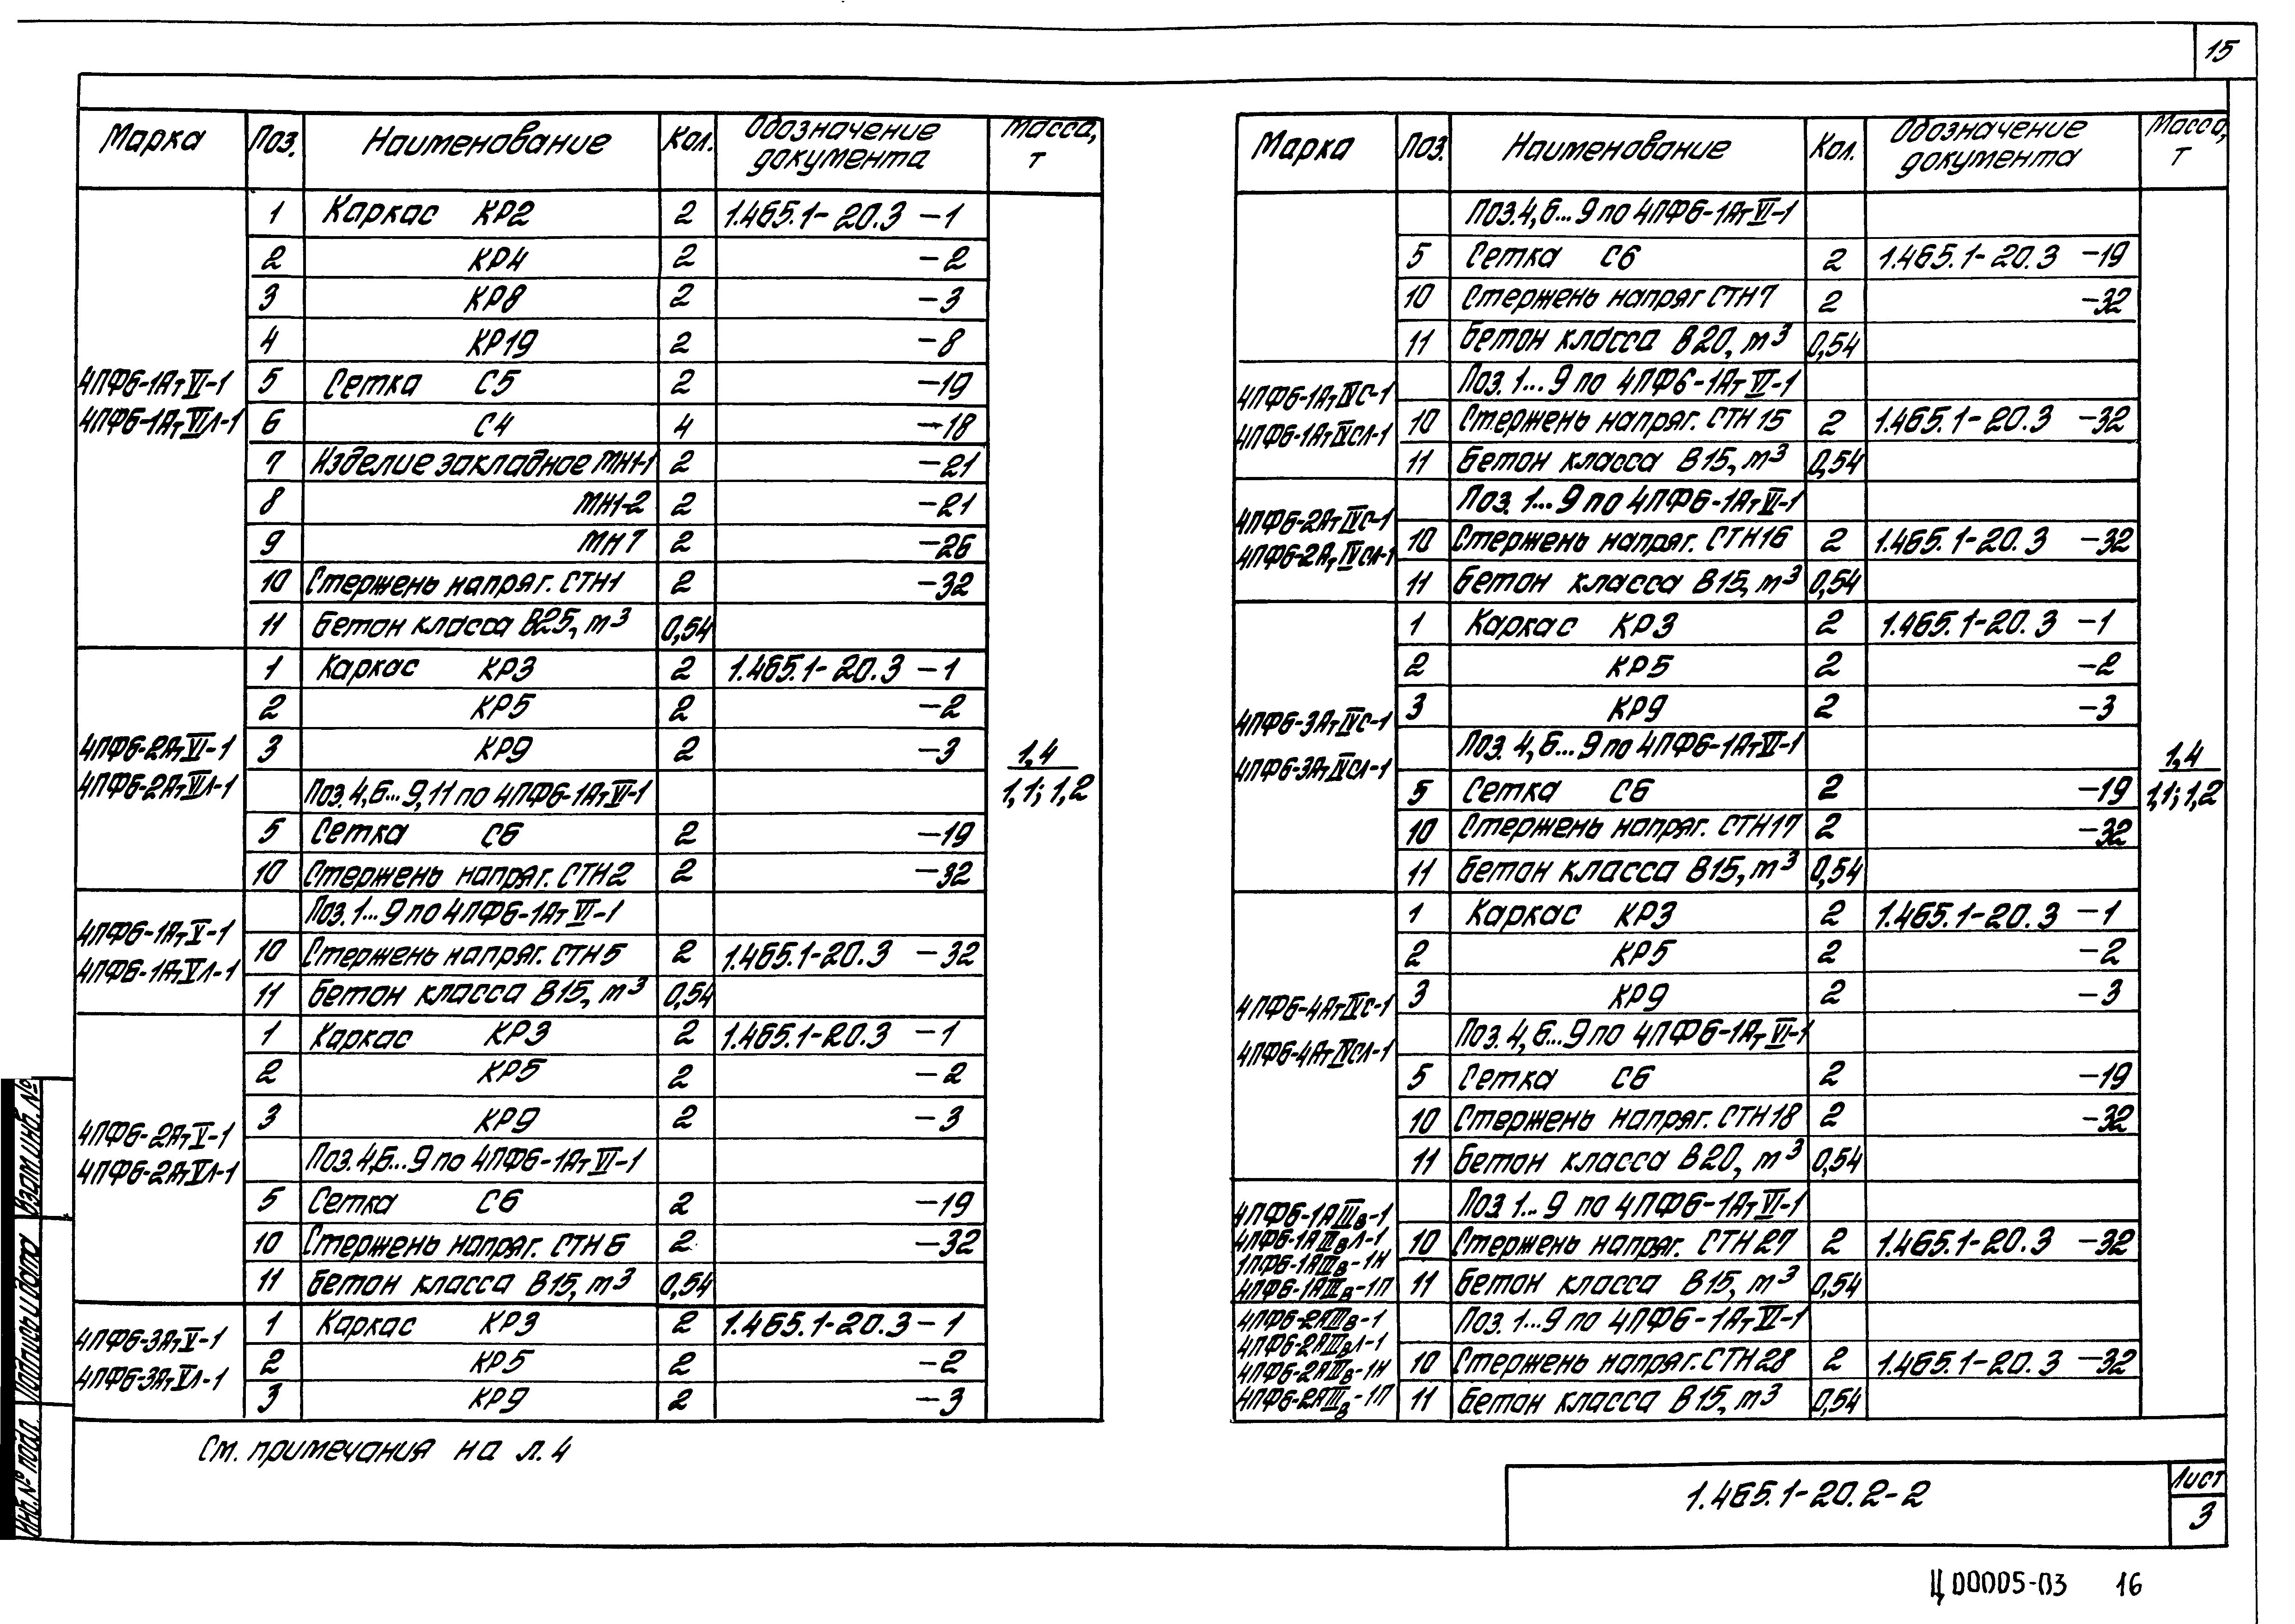 15
Марка Поз. Наименование Кол. Обозначение документа Масса, т
4ПФ6-1АтVI-1
4ПФ6-1АтVIЛ-1
1 Каркас КР2 2 1.465.1-20.3 -1
2 КР4 2 -2
3 КР8 2 -3
4 КР19 2 -8
5 Сетка С5 2 -19
6 С4 4 -18
7 Изделие закладное МН1-1 2 -21
8 МН1-2 2 -21
9 МН7 2 -26
10 Стержень напряг. СТН1 2 -32
11 Бетон класса В25, м³ 0,54
4ПФ6-2АтVI-1
4ПФ6-2АтVIЛ-1
1 Каркас КР3 2 1.465.1-20.3 -1
2 КР5 2 -2
3 КР9 2 -3
Поз. 4, 6...9, 11 по 4ПФ6-1АтVI-1
5 Сетка С6 2 -19
10 Стержень напряг. СТН2 2 -32
1,4
1,1; 1,2
4ПФ6-1АтV-1
4ПФ6-1АтVЛ-1
Поз. 1...9 по 4ПФ6-1АтVI-1
10 Стержень напряг. СТН5 2 1.465.1-20.3 -32
11 Бетон класса В15, м³ 0,54
4ПФ6-2АтV-1
4ПФ6-2АтVЛ-1
1 Каркас КР3 2 1.465.1-20.3 -1
2 КР5 2 -2
3 КР9 2 -3
Поз. 4,6...9 по 4ПФ6-1АтVI-1
5 Сетка С6 2 -19
10 Стержень напряг. СТН6 2 -32
11 Бетон класса В15, м³ 0,54
4ПФ6-3АтV-1
4ПФ6-3АтVЛ-1
1 Каркас КР3 2 1.465.1-20.3 -1
2 КР5 2 -2
3 КР9 2 -3
Марка Поз. Наименование Кол. Обозначение документа Масса, т
Поз. 4, 6...9 по 4ПФ6-1АтVI-1
5 Сетка С6 2 1.465.1-20.3 -19
10 Стержень напряг СТН7 2 -32
11 Бетон класса В20, м³ 0,54
4ПФ6-1АтIVС-1
4ПФ6-1АтIVСЛ-1
Поз. 1...9 по 4ПФ6-1АтVI-1
10 Стержень напряг. СТН15 2 1.465.1-20.3 -32
11 Бетон класса В15, м³ 0,54
4ПФ6-2АтIVС-1
4ПФ6-2АтIVСЛ-1
Поз. 1...9 по 4ПФ6-1АтVI-1
10 Стержень напряг. СТН16 2 1.465.1-20.3 -32
11 Бетон класса В15, м³ 0,54
4ПФ6-3АтIVС-1
4ПФ6-3АтIVСЛ-1
1 Каркас КР3 2 1.465.1-20.3 -1
2 КР5 2 -2
3 КР9 2 -3
Поз. 4, 6...9 по 4ПФ6-1АтVI-1
5 Сетка С6 2 -19
10 Стержень напряг. СТН17 2 -32
11 Бетон класса В15, м³ 0,54
1,4
1,1; 1,2
4ПФ6-4АтIVС-1
4ПФ6-4АтIVСЛ-1
1 Каркас КР3 2 1.465.1-20.3 -1
2 КР5 2 -2
3 КР9 2 -3
Поз. 4, 6...9 по 4ПФ6-1АтVI-1
5 Сетка С6 2 -19
10 Стержень напряг. СТН18 2 -32
11 Бетон класса В20, м³ 0,54
4ПФ6-1АIIIв-1
4ПФ6-1АIIIвЛ-1
1ПФ6-1АIIIв-1Н
4ПФ6-1АIIIв-1П
Поз. 1...9 по 4ПФ6-1АтVI-1
10 Стержень напряг. СТН27 2 1.465.1-20.3 -32
11 Бетон класса В15, м³ 0,54
4ПФ6-2АIIIв-1
4ПФ6-2АIIIвЛ-1
4ПФ6-2АIIIв-1Н
4ПФ6-2АIIIв-1П
Поз. 1...9 по 4ПФ6-1АтVI-1
10 Стержень напряг. СТН28 2 1.465.1-20.3 -32
11 Бетон класса В15, м³ 0,54
См. примечания на л. 4
Инв. № подл. Подпись и дата Взам инв. №
1.465.1-20.2-2
Лист
3
Ц00005-03 16